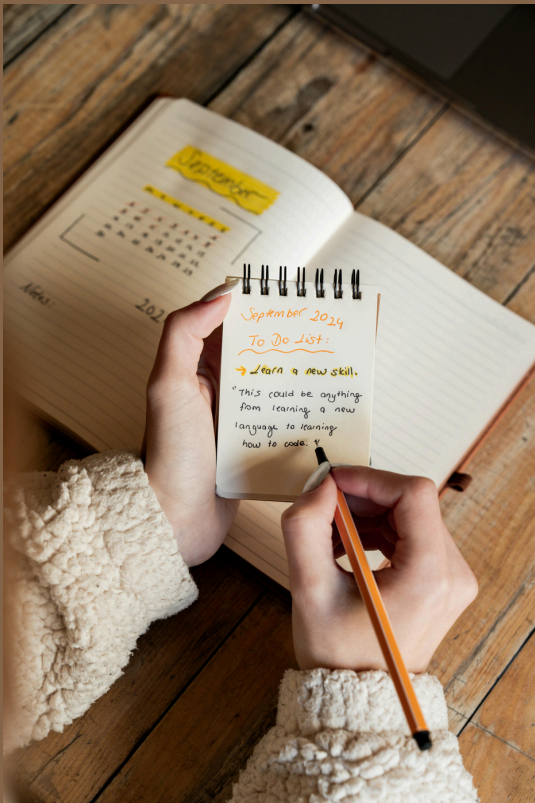 September
Notes:
202
September 2024
To Do List:
→ Learn a new skill.
"This could be anything
from learning a new
language to learning
how to code."